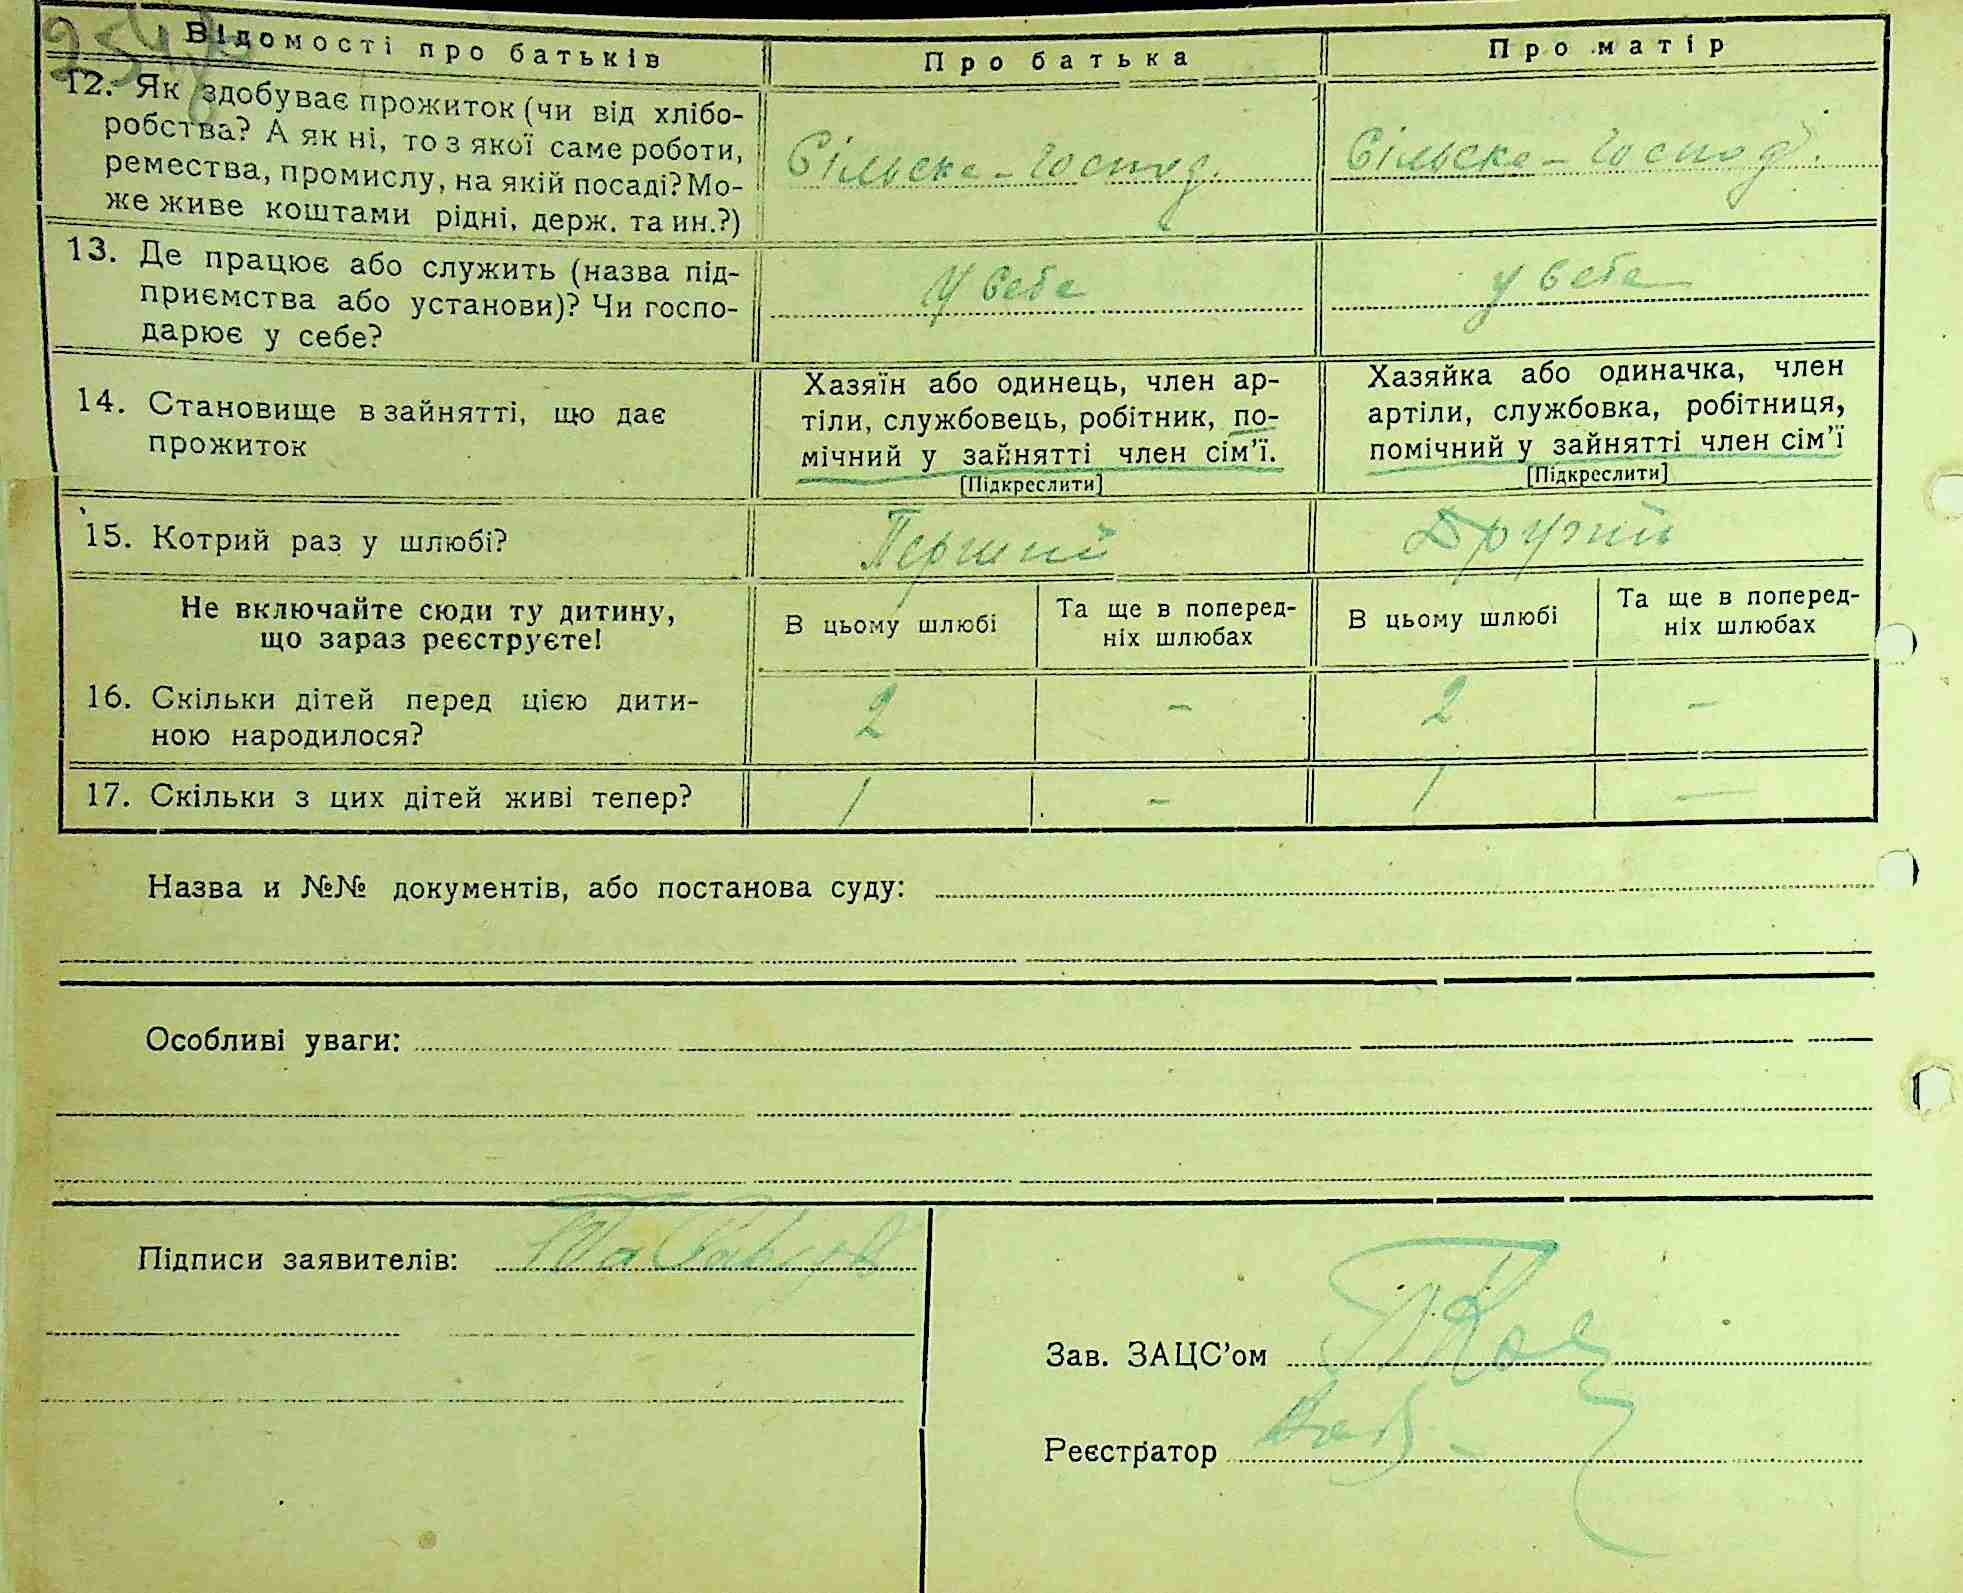 Відомості про батьків
Про батька
Про матір
12. Як здобуває прожиток (чи від хлібо-
робства? А як ні, то з якої саме роботи,
ремества, промислу, на якій посаді? Мо-
же живе коштами рідні, держ. та ин.?)
Сільске-Господ.
Сільске-Господ.
13. Де працює або служить (назва під-
приємства або установи)? Чи госпо-
дарює у себе?
У себе
у себе
14. Становище в зайнятті, що дає
прожиток
Хазяїн або одинець, член ар-
тіли, службовець, робітник, по-
мічний у зайнятті член сім'ї.
[Підкреслити]
Хазяйка або одиначка, член
артіли, службовка, робітниця,
помічний у зайнятті член сім'ї
[Підкреслити]
15. Котрий раз у шлюбі?
Перший
Другий
Не включайте сюди ту дитину,
що зараз реєструєте!
В цьому шлюбі
Та ще в поперед-
ніх шлюбах
В цьому шлюбі
Та ще в поперед-
ніх шлюбах
16. Скільки дітей перед цією дити-
ною народилося?
2
-
2
-
17. Скільки з цих дітей живі тепер?
1
-
1
-
Назва и №№ документів, або постанова суду:
Особливі уваги:
Підписи заявителів:
Зав. ЗАЦС'ом
Реєстратор